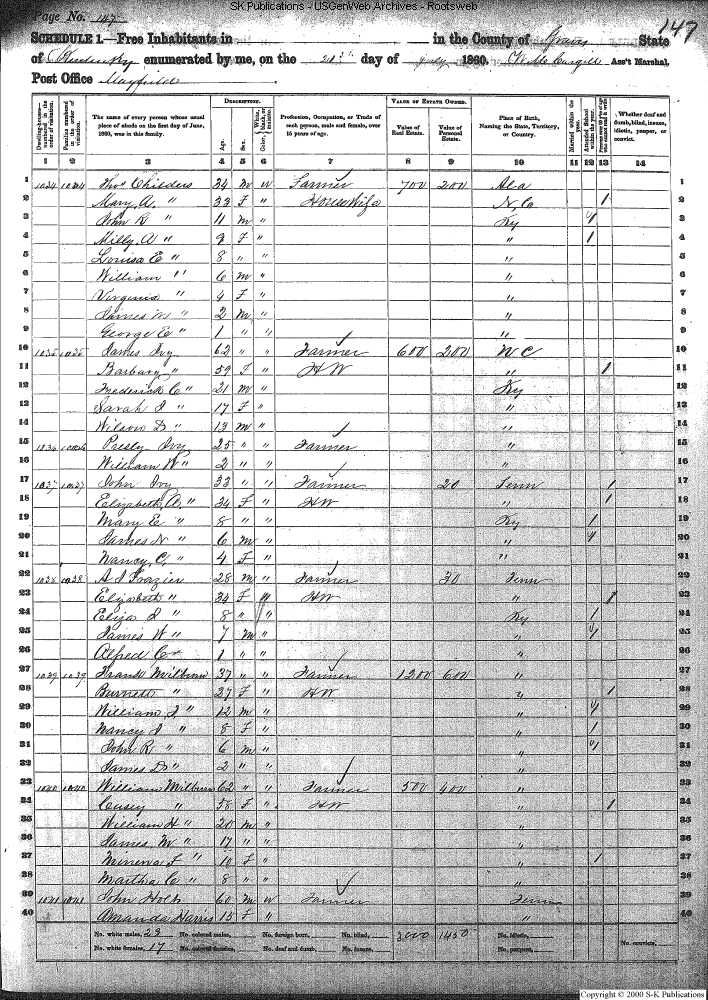 SK Publications - USGenWeb Archives - Rootsweb
Page No. 147
147
SCHEDULE 1.—Free Inhabitants in in the County of Graves State
of Kentucky enumerated by me, on the 21st day of July 1860. Ass't Marshal.
Post Office Mayfield
Dwelling-houses—numbered in the order of visitation.
Families numbered in the order of visitation.
The name of every person whose usual place of abode on the first day of June, 1860, was in this family.
DESCRIPTION.
Age.
Sex.
Color, White, black, or mulatto.
Profession, Occupation, or Trade of each person, male and female, over 15 years of age.
VALUE OF ESTATE OWNED.
Value of Real Estate.
Value of Personal Estate.
Place of Birth, Naming the State, Territory, or Country.
Married within the year.
Attended School within the year.
Whether deaf and dumb, blind, insane, idiotic, pauper, or convict.
1 2 3 4 5 6 7 8 9 10 11 12 13 14
1 1034 1034 Thos Childers 34 m w Farmer 700 200 Ala 1
2 Mary A. " 33 F " House Wife N. C. 1 2
3 John R " 11 m " Ky 1 3
4 Milly A " 9 F " " 1 4
5 Louisa E " 8 " " " 5
6 William " 6 m " " 6
7 Virginia " 4 F " " 7
8 James M " 2 m " " 8
9 George E " 1 " " " 9
10 1035 1035 James Ivy 62 " " Farmer 600 200 N C 10
11 Barbary " 59 F " HW " 1 11
12 Frederick C " 21 m " Ky 12
13 Sarah J " 17 F " " 13
14 Wilson D " 13 m " " 14
15 1036 1036 Presly Ivy 25 " " Farmer " 15
16 William W " 2 " " " 16
17 1037 1037 John Ivy 33 " " Farmer 20 Tenn 1 17
18 Elizabeth A. " 34 F " HW " 1 18
19 Mary E " 8 " " Ky 1 19
20 James N " 6 m " " 1 20
21 Nancy C. " 4 F " " 21
22 1038 1038 A J Frazier 28 m " Farmer 30 Tenn 22
23 Elizabeth " 34 F " HW " 1 23
24 Eliza J " 8 " " Ky 1 24
25 James W " 7 m " " 1 25
26 Alfred C " 1 " " " 26
27 1039 1039 Frank Milburn 37 " " Farmer 1200 600 " 27
28 Burnett " 27 F " HW " 1 28
29 William J " 12 m " " 1 29
30 Nancy J " 8 F " " 1 30
31 John R " 6 m " " 1 31
32 James D " 2 " " " 32
33 1040 1040 William Milburn 62 " " Farmer 500 400 " 33
34 Casey " 58 F " HW " 1 34
35 William H " 20 m " " 35
36 James M " 17 " " " 36
37 Minerva F " 10 F " " 1 37
38 Martha C " 8 " " " 38
39 1041 1041 John Holts 60 m w Farmer Tenn 39
40 Amanda Harris 15 F " " 40
No. white males, 23 No. colored males, No. foreign born, No. blind, 3000 1450 No. idiotic,
No. white females, 17 No. colored females, No. deaf and dumb, No. insane, No. paupers, No. convicts,
Copyright © 2000 S-K Publications